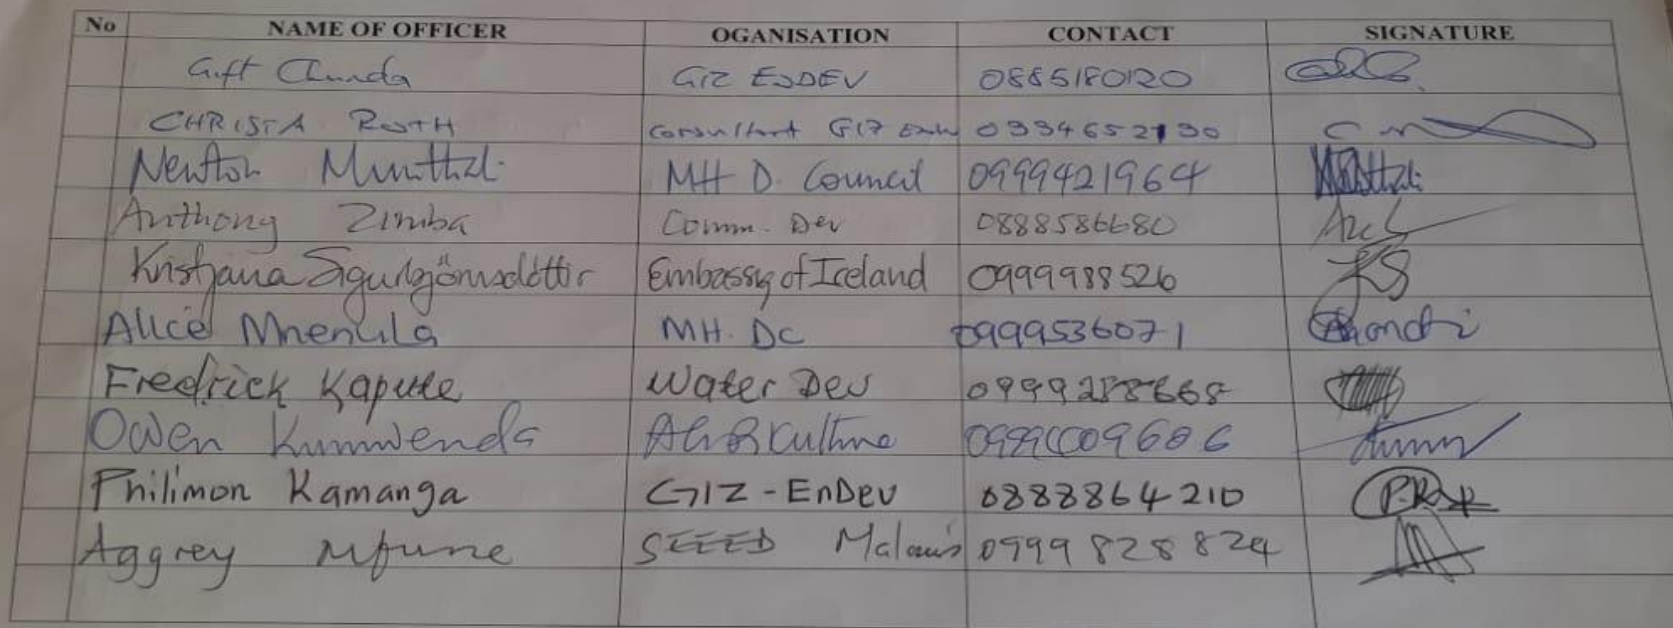 No NAME OF OFFICER OGANISATION CONTACT SIGNATURE
Gift Chunda GIZ ENDEV 0885180120
CHRISTA ROTH Consultant GIZ 0334652130
Newton Munthali MH D. Council 0999421964
Anthony Zimba Comm. Dev 0888586680
Kristjana Sigurbjörnsdóttir Embassy of Iceland 0999988526 KS
Alice Mhenula MH. DC 0999536071
Fredrick Kapute Water Dev 0999288668
Owen Kumwenda Agriculture
Philimon Kamanga GIZ - EnDev 0888864210
Aggrey Mfune SEEED Malawi 0999828824